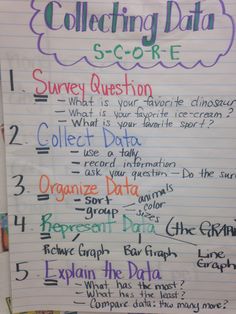 Collecting Data
S-C-O-R-E
1. Survey Question
- What is your favorite dinosaur
- What is your favorite ice-cream?
- What is your favorite sport?
2. Collect Data
- use a tally
- record information
- ask your question - Do the sur
3. Organize Data
- sort
- group
animals
color
sizes
4. Represent Data (the GRAPH
Picture Graph Bar Graph Line Graph
5. Explain the Data
- What has the most?
- What has the least?
- Compare data: how many more?